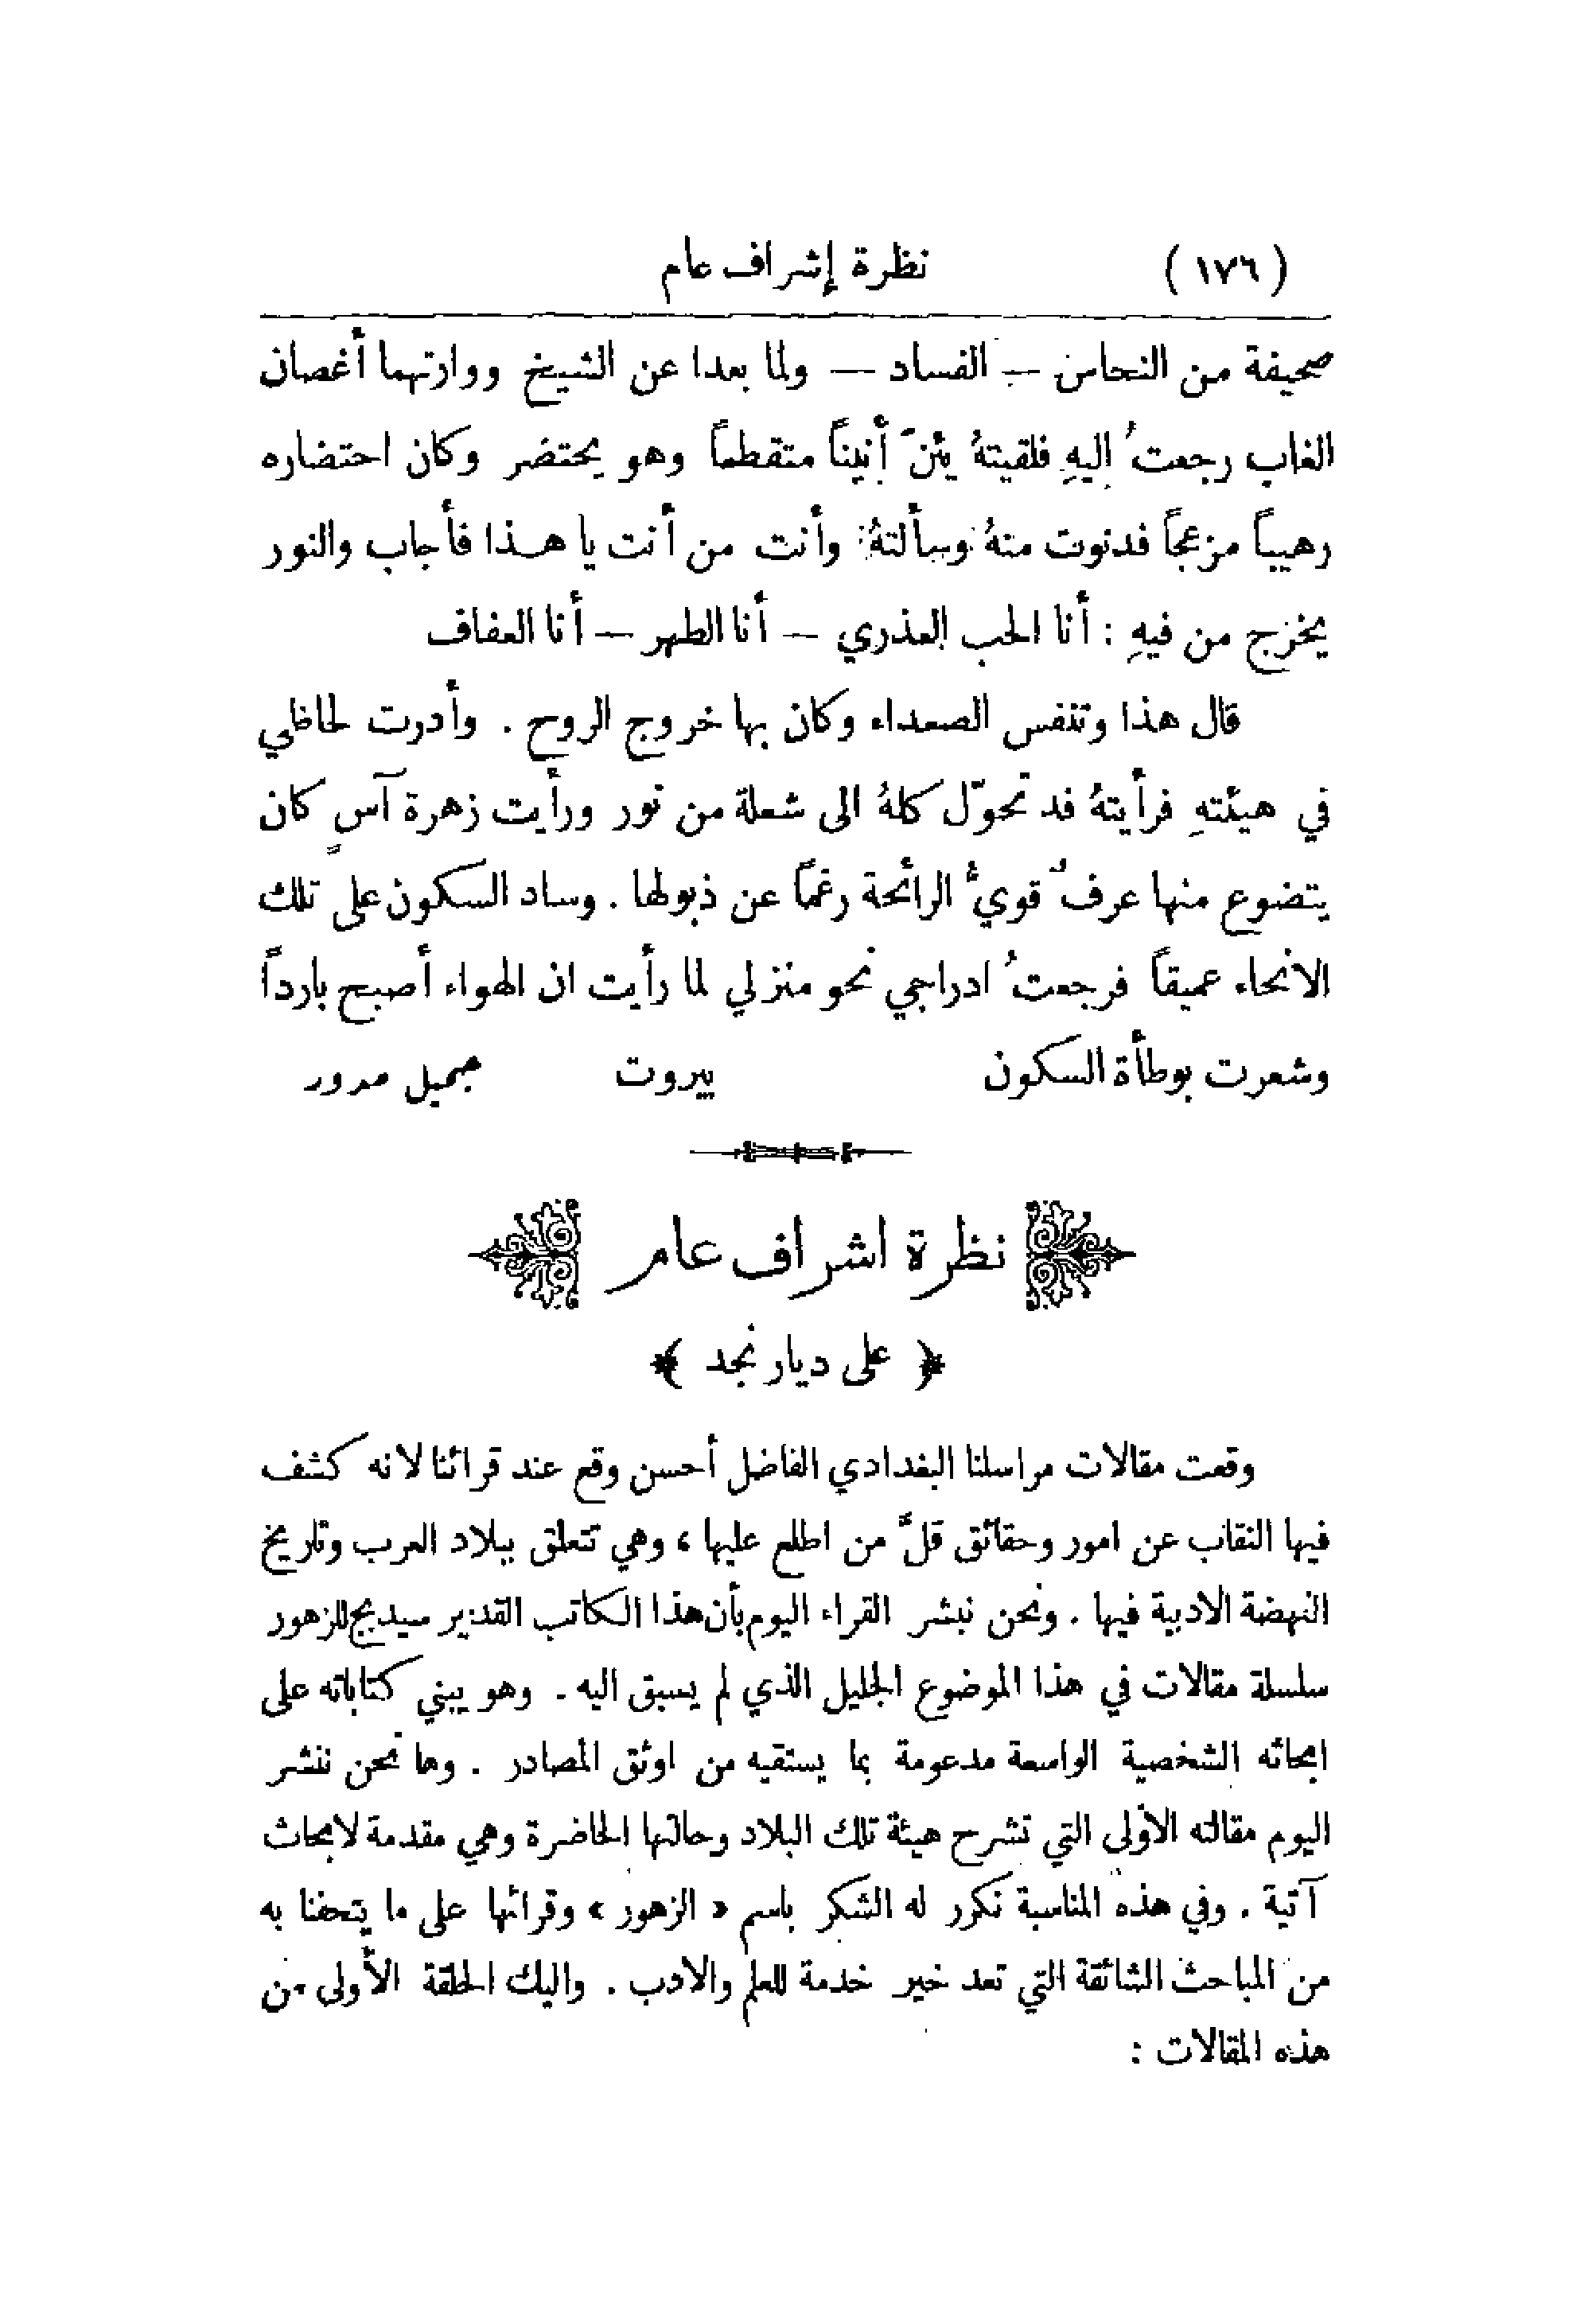 (١٧٦) نظرة إشراف عام
صحيفة من النحاس — الفساد — ولما بعدا عن الشيخ ووارتهما أغصان
الغاب رجعتُ إليهِ فلقيتهُ يئنّ أنيناً متقطعاً وهو يحتضر وكان احتضاره
رهيباً مزعجاً فدنوت منهُ وسألتهُ: وأنت من أنت يا هـذا فأجاب والنور
يخرج من فيهِ : أنا الحب العذري — أنا الطهر — أنا العفاف
قال هذا وتنفس الصعداء وكان بها خروج الروح . وأدرت لحاظي
في هيئتهِ فرأيتهُ قد تحوّل كلهُ الى شعلة من نور ورأيت زهرة آسٍ كان
يتضوع منها عرفٌ قويُّ الرائحة رغماً عن ذبولها . وساد السكون على تلك
الانحاء عميقاً فرجعتُ ادراجي نحو منزلي لما رأيت ان الهواء أصبح بارداً
وشعرت بوطأة السكون بيروت جميل مدور
نظرة اشراف عام
﴿ على ديار نجد ﴾
وقعت مقالات مراسلنا البغدادي الفاضل أحسن وقع عند قرائنا لانه كشف
فيها النقاب عن امور وحقائق قلَّ من اطلع عليها ، وهي تتعلق ببلاد العرب وتاريخ
النهضة الادبية فيها . ونحن نبشر القراء اليوم بأن هذا الكاتب القدير سيدبج للزهور
سلسلة مقالات في هذا الموضوع الجليل الذي لم يسبق اليه . وهو يبني كتاباته على
ابحاثه الشخصية الواسعة مدعومة بما يستقيه من اوثق المصادر . وها نحن ننشر
اليوم مقالته الأولى التي تشرح هيئة تلك البلاد وحالتها الحاضرة وهي مقدمة لابحاث
آتية . وفي هذه المناسبة نكرر له الشكر باسم « الزهور » وقرائها على ما يتحفنا به
من المباحث الشائقة التي تعد خير خدمة للعلم والادب . واليك الحلقة الأولى من
هذه المقالات :